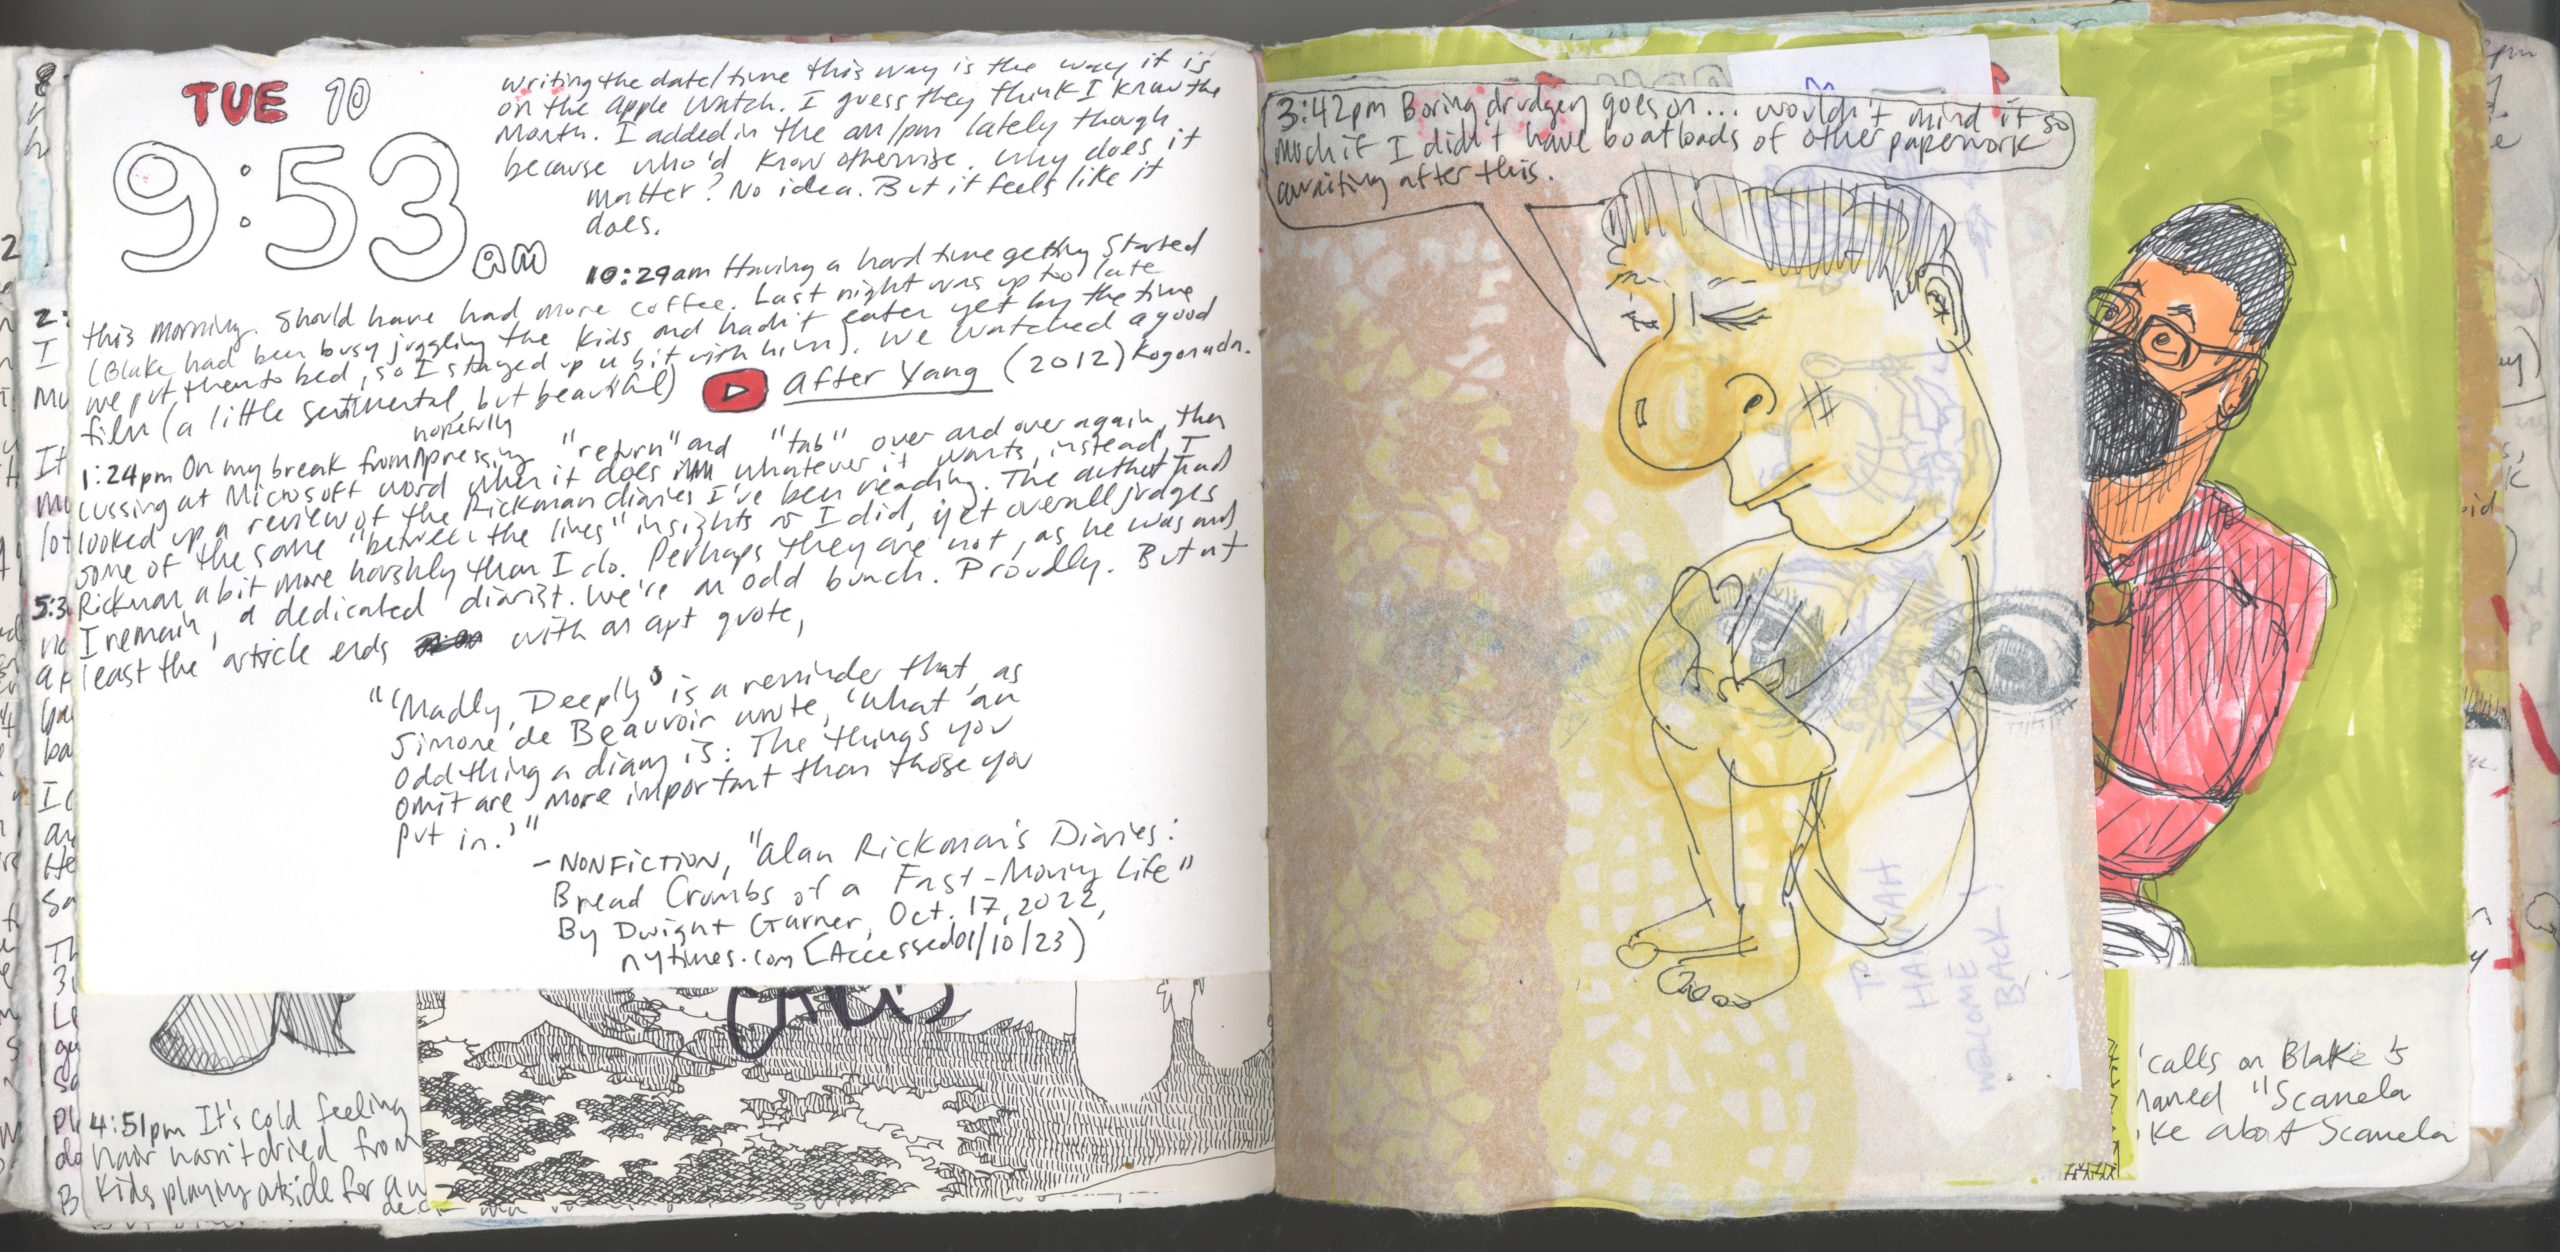 TUE 10
9:53 am
writing the date/time this way is the way it is
on the apple watch. I guess they think I know the
month. I added in the am/pm lately though
because who'd know otherwise. Why does it
matter? No idea. But it feels like it
does.
10:29am Having a hard time getting started
this morning. Should have had more coffee. Last night was up too late
(Blake had been busy juggling the kids and hadn't eaten yet by the time
we put them to bed, so I stayed up a bit with him). We watched a good
film (a little sentimental, but beautiful) After Yang (2012) Kogonada.
1:24pm On my break from hopefully pressing "return" and "tab" over and over again, then
cussing at Microsoft word when it does whatever it wants, instead, I
looked up a review of the Rickman diaries I've been reading. The author had
some of the same "between the lines" insights as I did, yet overall judges
Rickman a bit more harshly than I do. Perhaps they are not, as he was and
I remain, a dedicated diarist. We're an odd bunch. Proudly. But at
least the article ends with an apt quote,
"'Madly, Deeply' is a reminder that, as
Simone de Beauvoir wrote, 'what an
odd thing a diary is: The things you
omit are more important than those you
put in.'"
- NONFICTION, "Alan Rickman's Diaries:
Bread Crumbs of a Fast-Moving Life"
By Dwight Garner, Oct. 17, 2022,
nytimes.com (Accessed 01/10/23)
4:51pm It's cold feeling
hair hasn't dried from
kids playing outside for an
3:42pm Boring drudgery goes on... wouldn't mind it so
much if I didn't have boatloads of other paperwork
awaiting after this.
TO
HANNAH
WELCOME
BACK!
calls on Blake's
named "Scamela
ike about Scamela